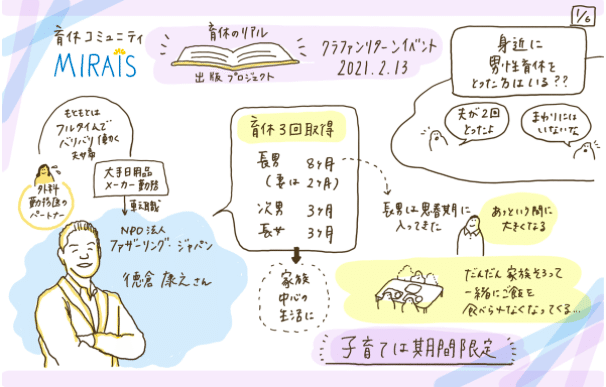 1/6
育休コミュニティ
MIRAIS
育休のリアル
出版プロジェクト
クラファンリターンイベント
2021.2.13
身近に
男性育休を
とった方はいる??
夫が2回
とったよ
まわりには
いないな
もともとは
フルタイムで
バリバリ働く
夫婦
外科
勤務医の
パートナー
大手日用品
メーカー勤務
転職
NPO法人
ファザーリング・ジャパン
徳倉 康之さん
育休3回取得
長男 8ヶ月
(妻は2ヶ月)
次男 3ヶ月
長女 3ヶ月
家族
中心の
生活に
長男は思春期に
入ってきた
あっという間に
大きくなる
だんだん家族そろって
一緒にご飯を
食べられなくなってく…
子育ては期間限定